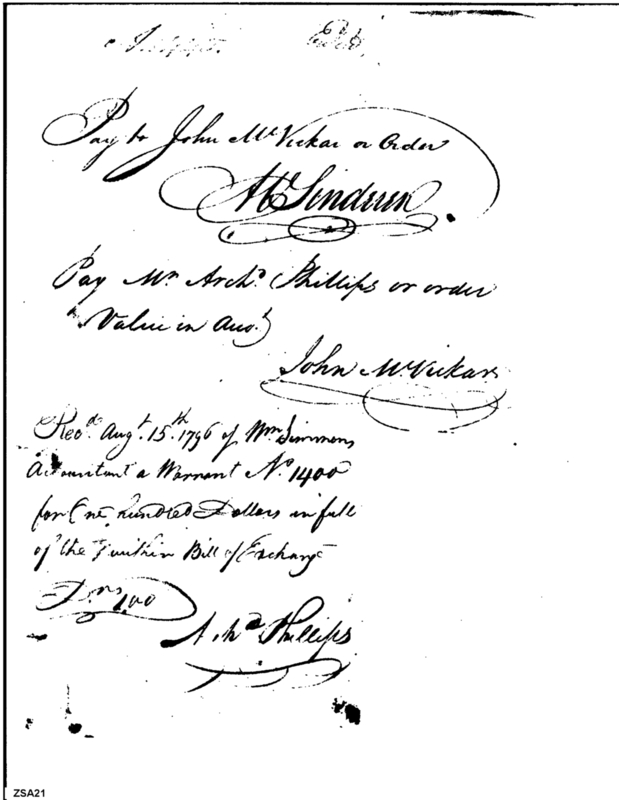 Pay to John McVickar or Order
Pay Mr. Archd. Phillips or order
Value in Accot.
John McVickar
Recd. Augt. 15.th 1796 of Wm Simmons
Accountant a Warrant No. 1400
for One hundred Dollars in full
of the within Bill of Exchange
Drs 100
Archd Phillips
ZSA21